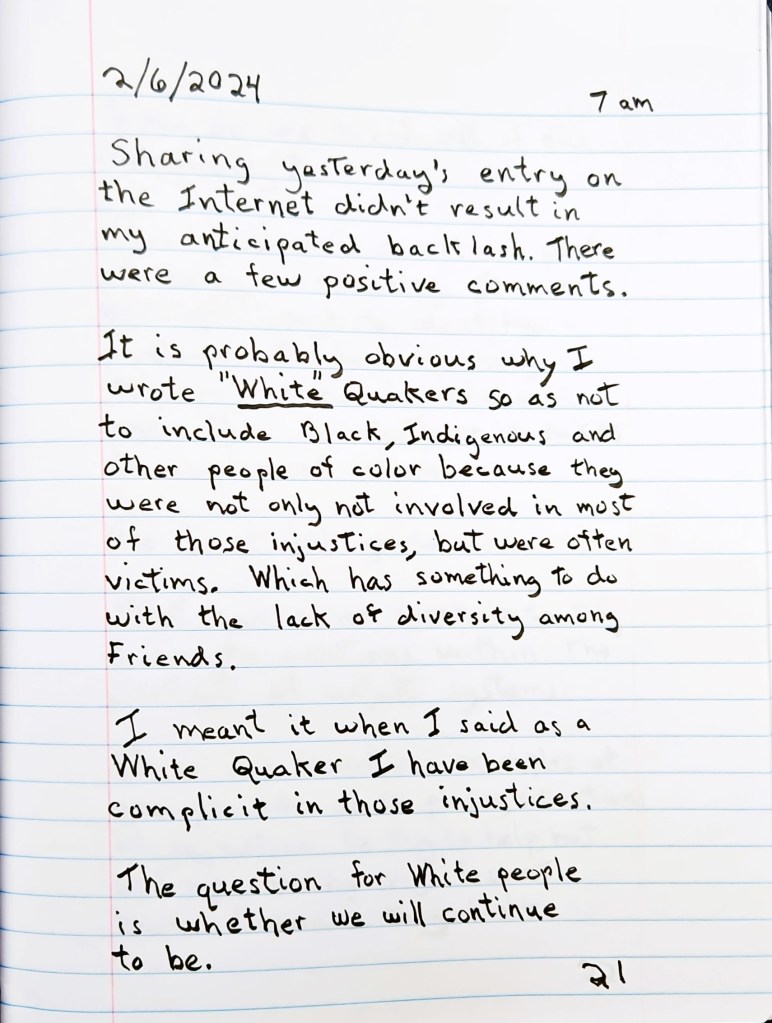 2/6/2024
7 am
Sharing yesterday's entry on
the Internet didn't result in
my anticipated backlash. There
were a few positive comments.
It is probably obvious why I
wrote "White" Quakers so as not
to include Black, Indigenous and
other people of color because they
were not only not involved in most
of those injustices, but were often
victims. Which has something to do
with the lack of diversity among
Friends.
I meant it when I said as a
White Quaker I have been
complicit in those injustices.
The question for White people
is whether we will continue
to be.
21